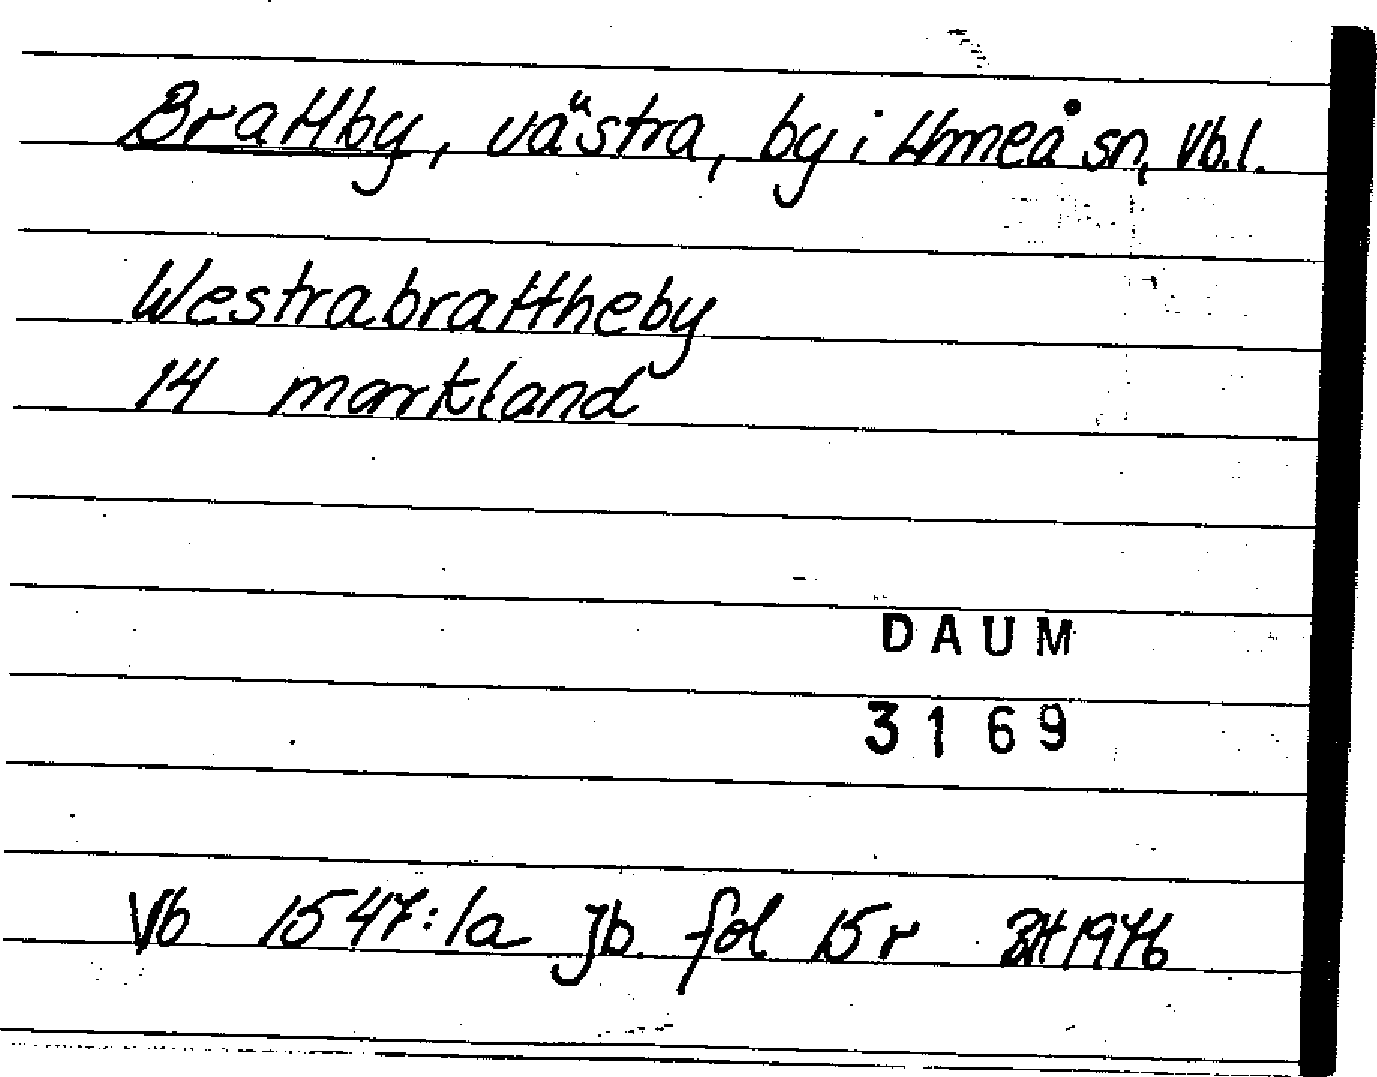 Brattby, västra, by i Umeå sn, Vb.l.
Westrabrattheby
14 markland
DAUM
3169
Vb 1547:1a Jb. fol 15 r 1976